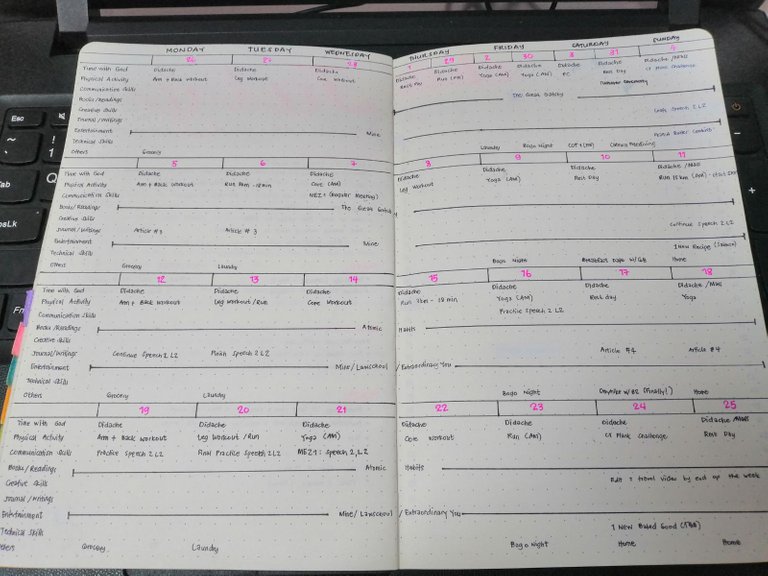 MONDAY TUESDAY WEDNESDAY THURSDAY FRIDAY SATURDAY SUNDAY
26 27 28 1 29 2 30 3 31 4
Time with God Didache Didache Didache Didache Didache Didache Didache Didache Didache Didache /Mass
Physical Activity Arm + Back Workout Leg Workout Core Workout Rest Day Run (AM) Yoga (AM) Yoga (AM) Rest Day CT Plank Challenge
Communication Skills
Books/Readings The Great Gatsby
Creative Skills
Journal/Writings Craft Speech 2 L2
Entertainment Mine
Technical Skills
Others Grocery Laundry Bago Night
5 6 7 8 9 10 11
Time with God Didache Didache Didache Didache Didache Didache Didache /Mass
Physical Activity Arm + Back Workout Run 2km - 18 min Core (AM) Leg Workout Yoga (AM) Rest Day
Communication Skills MEZ1 (Regular Meeting)
Books/Readings The Great Gatsby
Creative Skills
Journal/Writings Article #3 Article #3 Continue Speech 2 L2
Entertainment Mine
Technical Skills 1 New Recipe
Others Grocery Laundry Bago Night Home
12 13 14 15 16 17 18
Time with God Didache Didache Didache Didache Didache Didache Didache /Mass
Physical Activity Arm + Back Workout Leg Workout /Run Core Workout Run 2km - 18 min Yoga (AM) Rest day Yoga
Communication Skills Practice Speech 2 L2
Books/Readings Atomic Habits
Creative Skills
Journal/Writings Continue Speech 2 L2 Finish Speech 2 L2 Article #4 Article #4
Entertainment Mine/ Lawschool / Extraordinary You
Technical Skills
Others Grocery Laundry Bago Night (Finally!) Home
19 20 21 22 23 24 25
Time with God Didache Didache Didache Didache Didache Didache Didache /Mass
Physical Activity Arm + Back workout Leg Workout /Run Yoga (AM) Core Workout Run (AM) CT Plank Challenge Rest Day
Communication Skills Practice Speech 2 L2 Final Practice Speech 2 L2 MEZ1: Speech 2, L2
Books/Readings Atomic Habits
Creative Skills Edit 1 travel video by end of the week
Journal/Writings
Entertainment Mine/ Lawschool / Extraordinary You
Technical Skills 1 New Baked Good
Others Grocery Laundry Bago Night Home Home
Esc